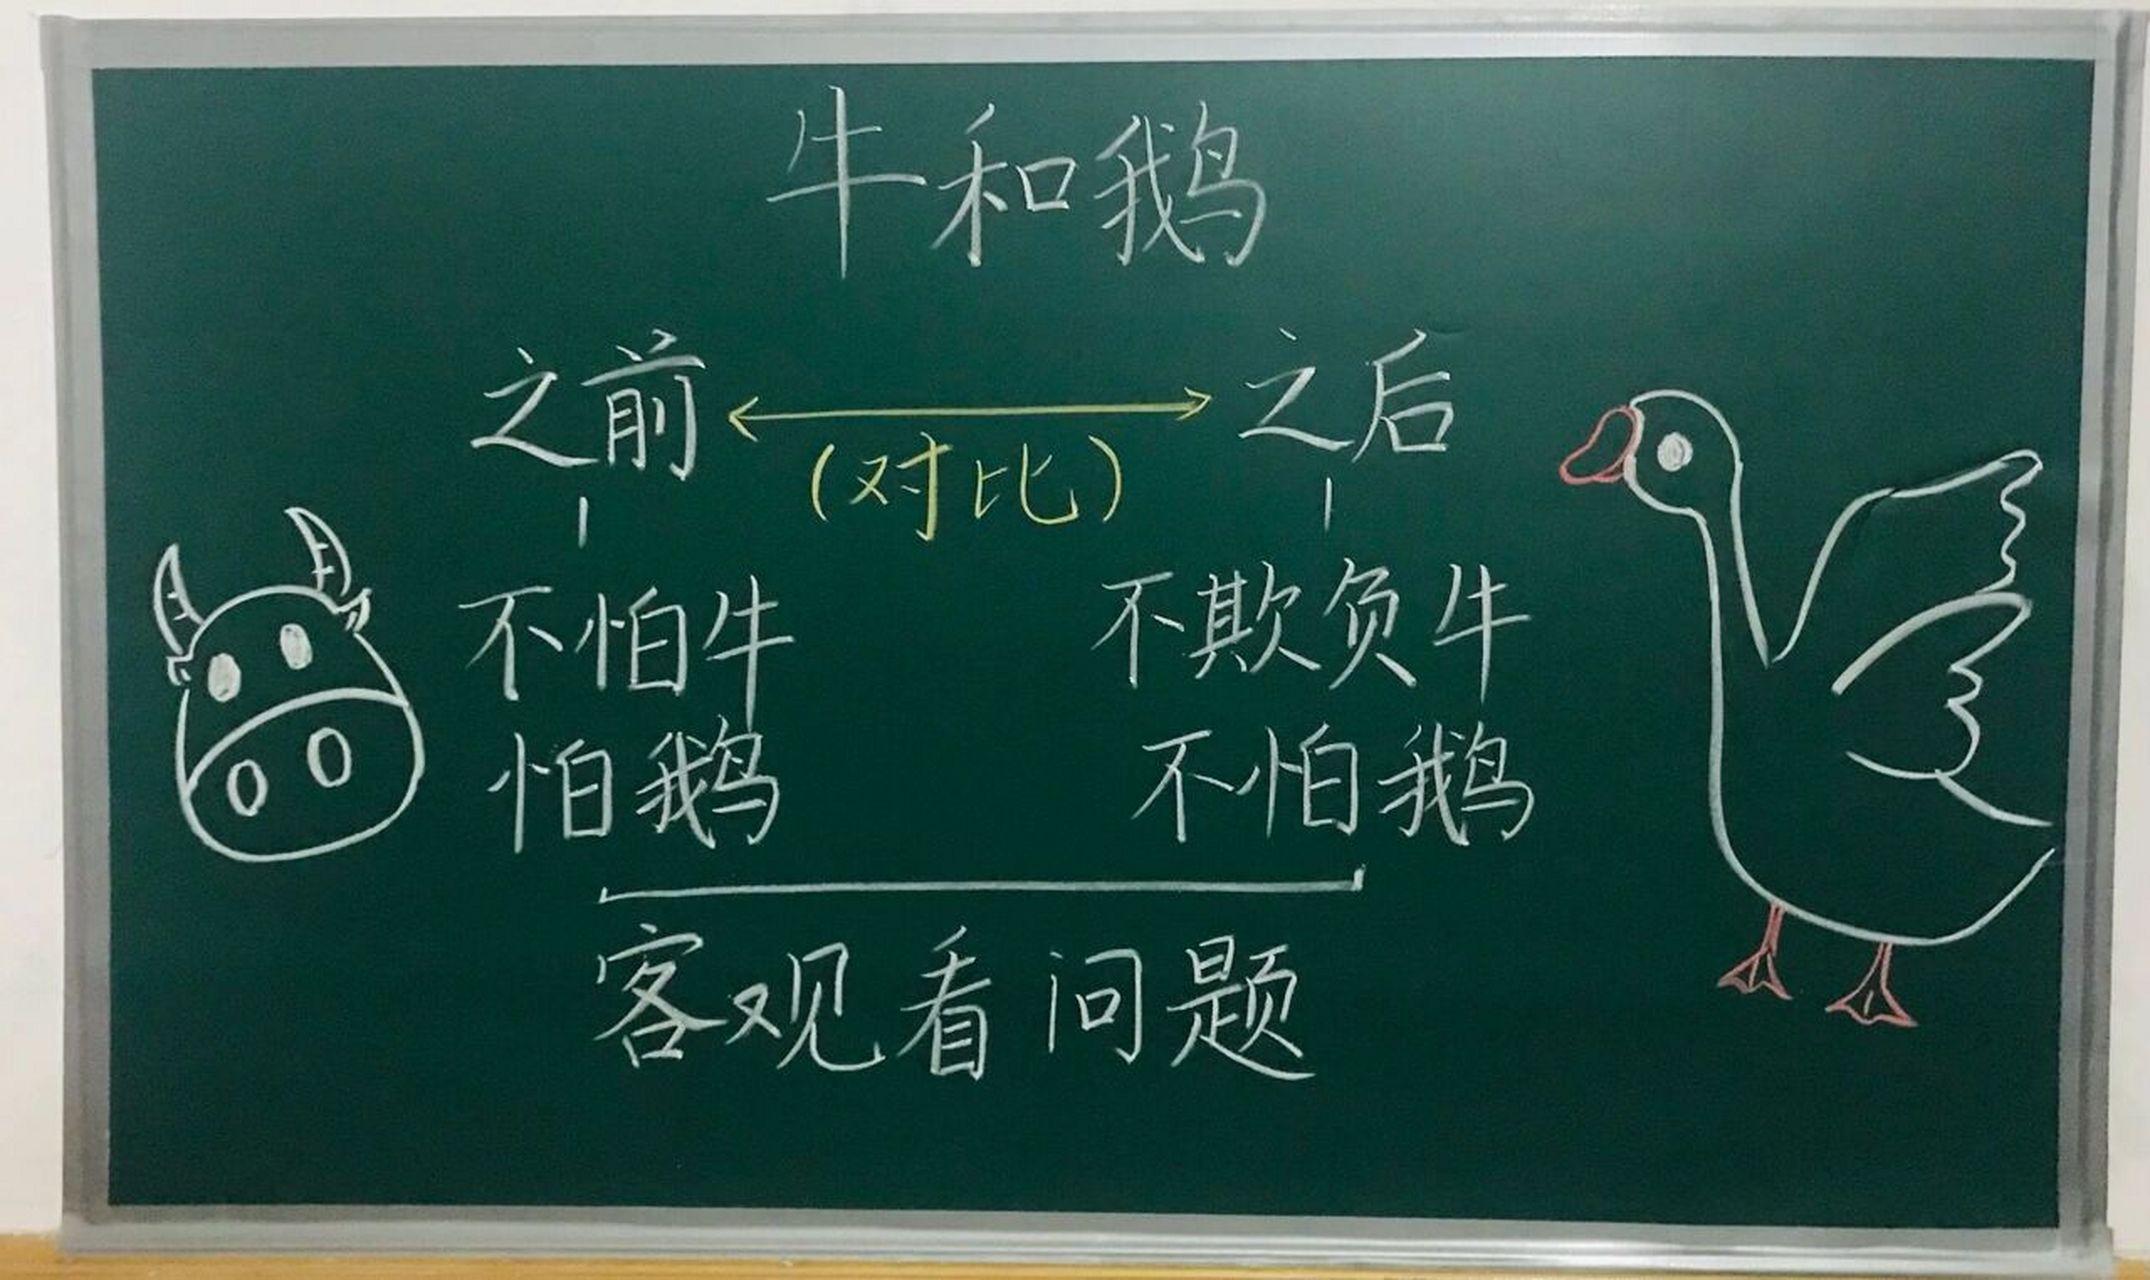 牛和鹅
之前 之后
(对比)
不怕牛 不欺负牛
怕鹅 不怕鹅
客观看问题